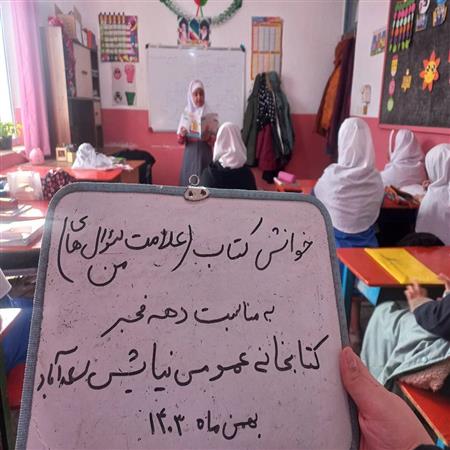 خوانش کتاب (علامت سؤال های من)
به مناسبت دهه فجر
کتابخانه عمومی نیایش سعدآباد
بهمن ماه ۱۴۰۳